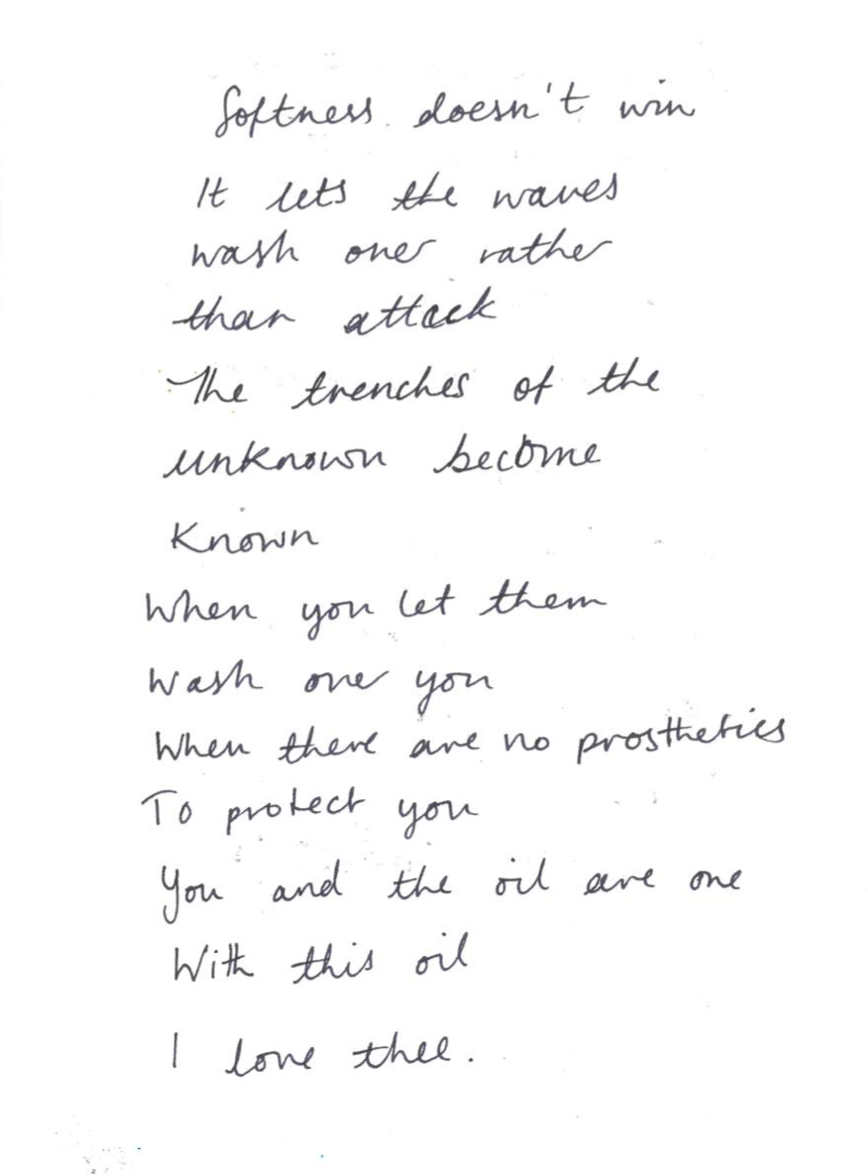 Softness doesn't win
It lets the waves
wash over rather
than attack
The trenches of the
unknown become
Known
When you let them
Wash over you
When there are no prosthetics
To protect you
You and the oil are one
With this oil
I love thee.